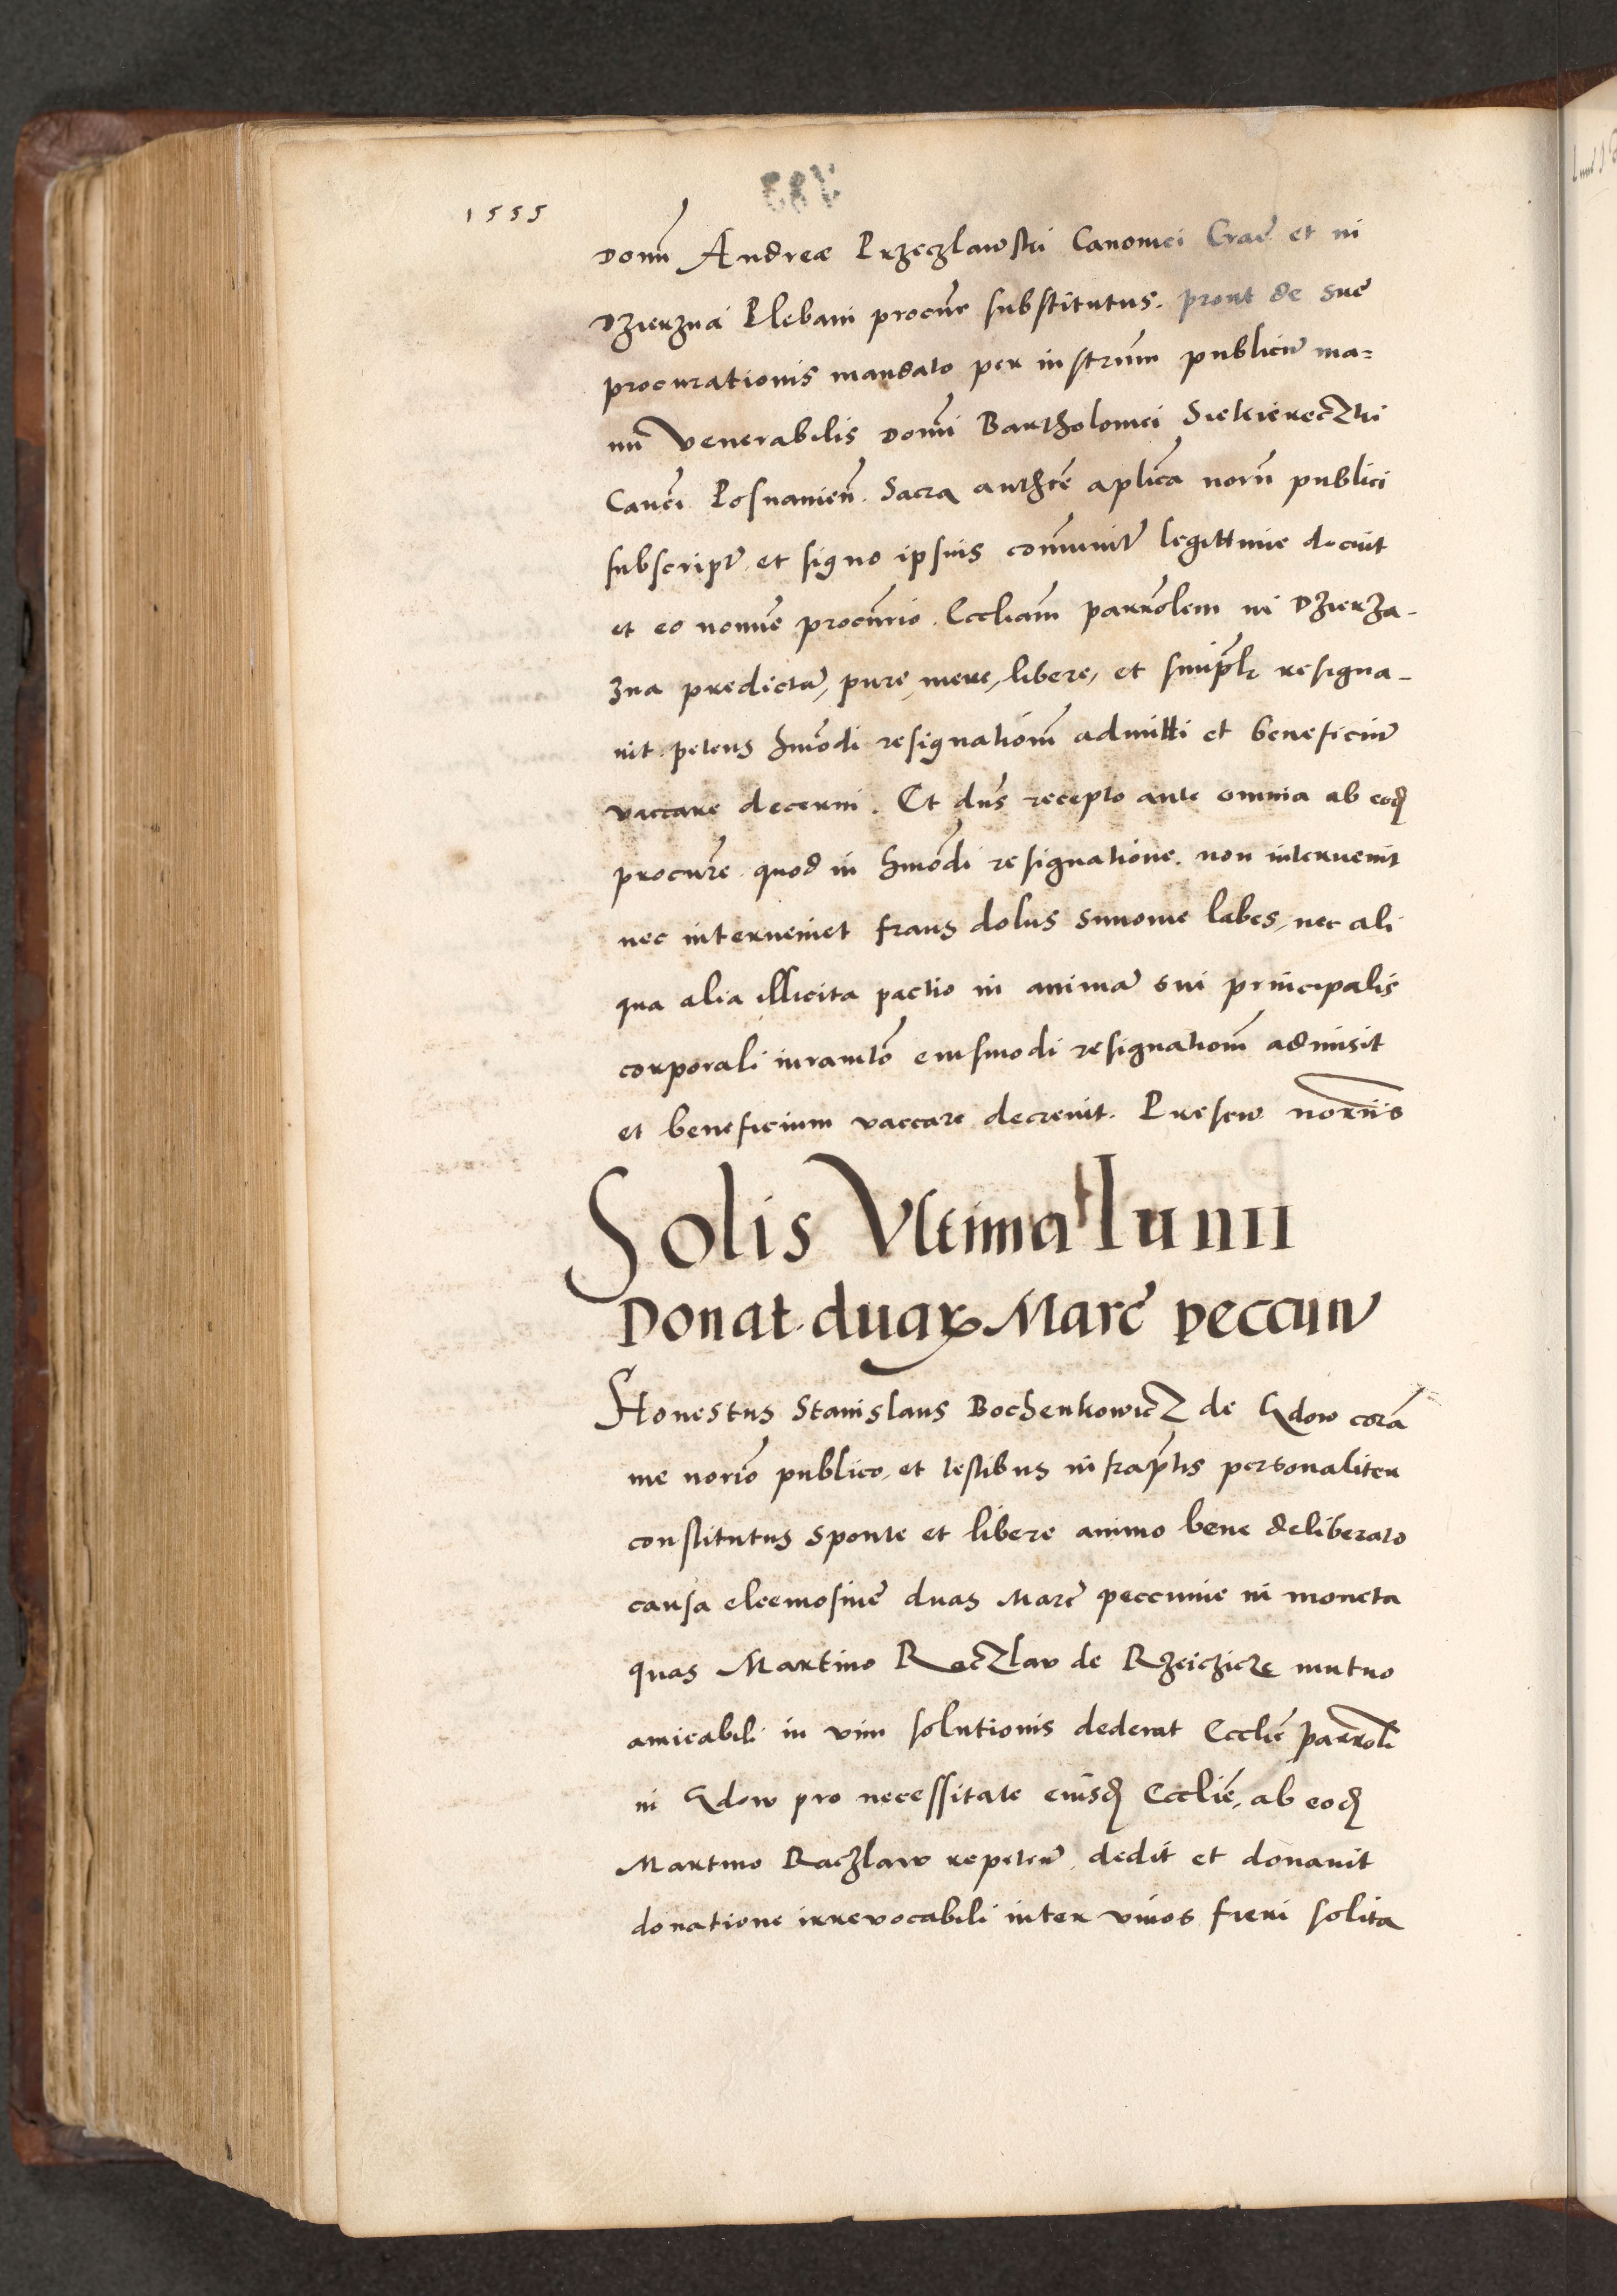 1555
domi Andreæ Przeczlawski Canonici Crac̃ et in
Dzierzna Plebani procur̃ substitutus. prout de sue
procurationis mandato per instrum̃ publicũ ma=
nu Venerabilis domĩ Bartholomei Siekiereczki
Canc̃i Posnanien̄. Sacra authc̃te aplicã norij publici
subscriptũ et signo ipsius communitũ legittime docuit
et eo nomine procurio. Eccliam̃ parrõlem in Dzierza-
zna predictam, pure, mere, libere, et simpl̃r resigna-
uit petens hmõdi resignationem̃ admitti et beneficiũ
vaccare decerni. Et dñs recepto ante omnia ab eodẽ
procur̃e quod in hmõdi resignatione. non interuenit
nec interueniet fraus dolus simonie labes, nec ali
qua alia illicita pactio in animã sui principalis
corporali iuramẽto eiusmodi resignationem̃ admisit
et beneficium vaccare decreuit. Presen̄ norijs
Solis Vltima Iunii
Donat. duarꝝ Marc̃ peccun̄
Honestus Stanislaus Bochenkowicz de Gdow corã
me norio publico et testibus infrap̃tis personaliter
constitutus sponte et libere animo bene deliberato
causa eleemosine duas Marc̃ peccunie in moneta
quas Martino Raczlaw de Rzeiczicze mutuo
amicabili in vim solutionis dederat Ecclie parrõli
in Gdow pro necessitate eiusdẽ Ecclie, ab eodẽ
Martino Raczlaw repetenr̃ dedit et donauit
donatione irreuocabili inter viuos fieri solita